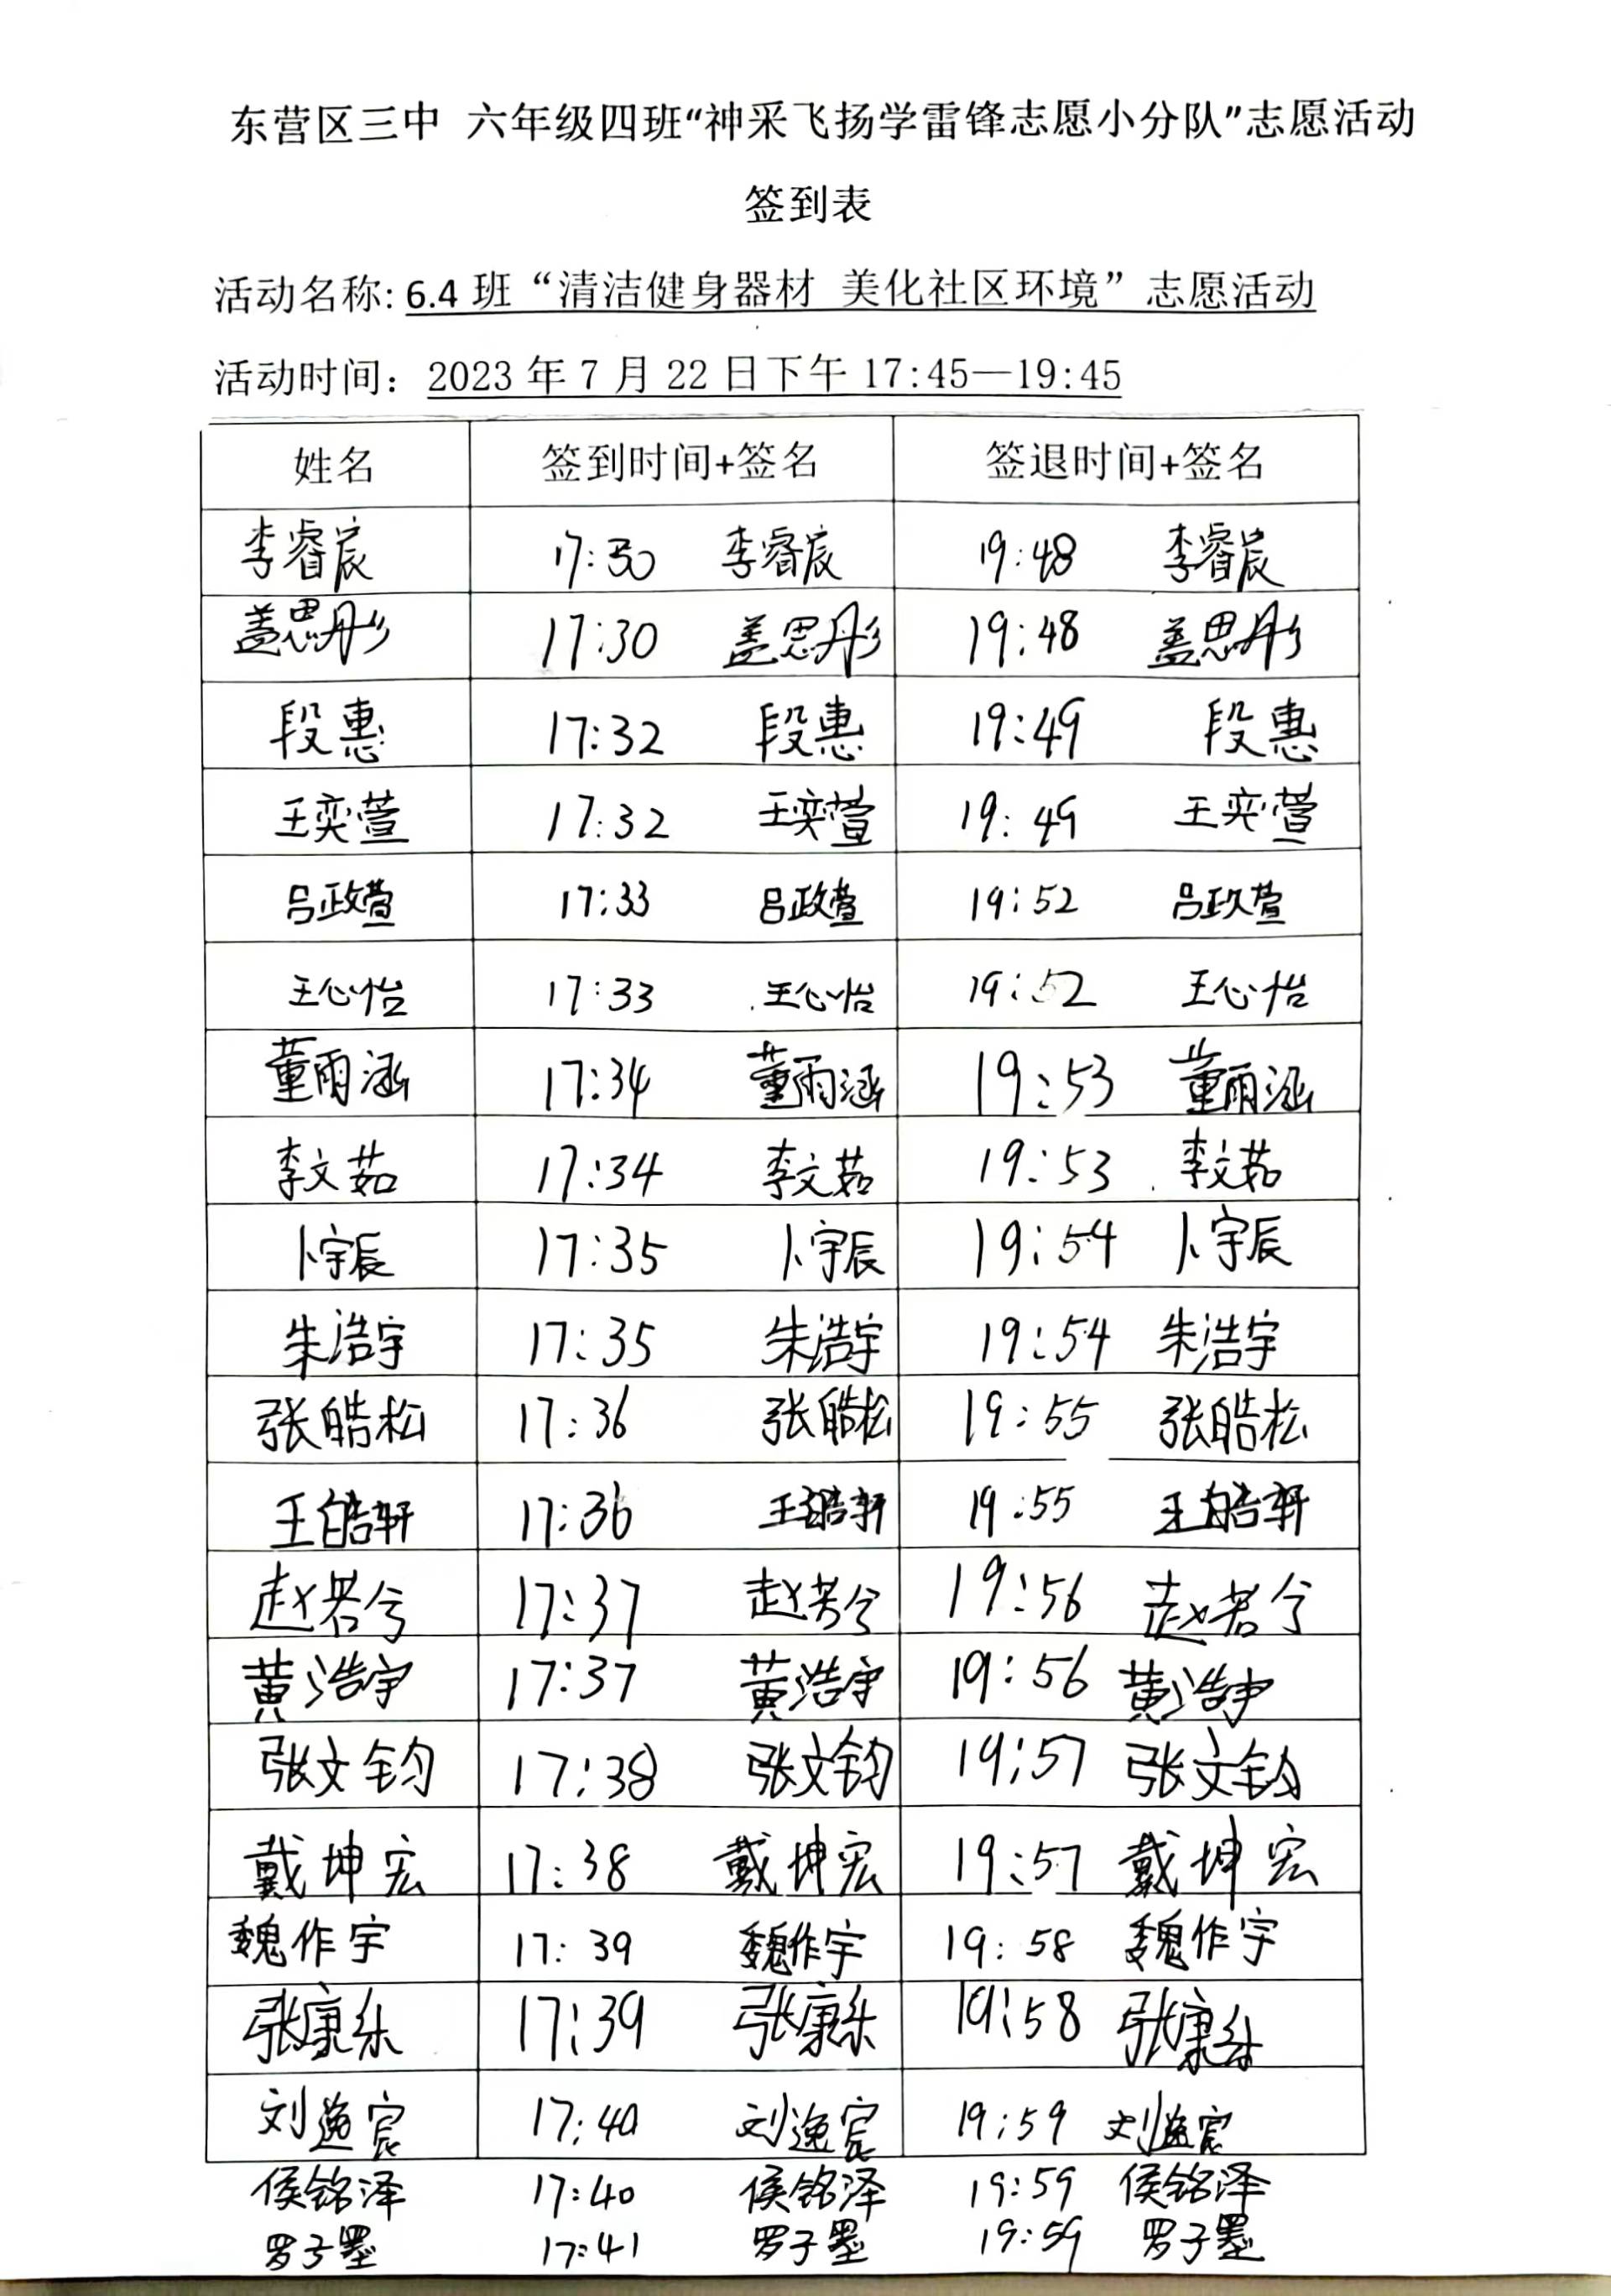 东营区三中 六年级四班“神采飞扬学雷锋志愿小分队”志愿活动
签到表
活动名称: 6.4 班“清洁健身器材 美化社区环境”志愿活动
活动时间：2023 年 7 月 22 日下午 17:45—19:45
姓名 签到时间+签名 签退时间+签名
李睿宸 17:30 李睿宸 19:48 李睿宸
盖思彤 17:30 盖思彤 19:48 盖思彤
段惠 17:32 段惠 19:49 段惠
王奕萱 17:32 王奕萱 19:49 王奕萱
吕政萱 17:33 吕政萱 19:52 吕政萱
王心怡 17:33 王心怡 19:52 王心怡
董雨涵 17:34 董雨涵 19:53 董雨涵
李文茹 17:34 李文茹 19:53 李文茹
卜宇辰 17:35 卜宇辰 19:54 卜宇辰
朱浩宇 17:35 朱浩宇 19:54 朱浩宇
张皓松 17:36 张皓松 19:55 张皓松
王皓轩 17:36 王皓轩 19:55 王皓轩
赵若兮 17:37 赵若兮 19:56 赵若兮
黄浩宇 17:37 黄浩宇 19:56 黄浩宇
张文钧 17:38 张文钧 19:57 张文钧
戴坤宏 17:38 戴坤宏 19:57 戴坤宏
魏作宇 17:39 魏作宇 19:58 魏作宇
张康乐 17:39 张康乐 19:58 张康乐
刘逸宸 17:40 刘逸宸 19:59 刘逸宸
侯铭泽 17:40 侯铭泽 19:59 侯铭泽
罗子墨 17:41 罗子墨 19:59 罗子墨